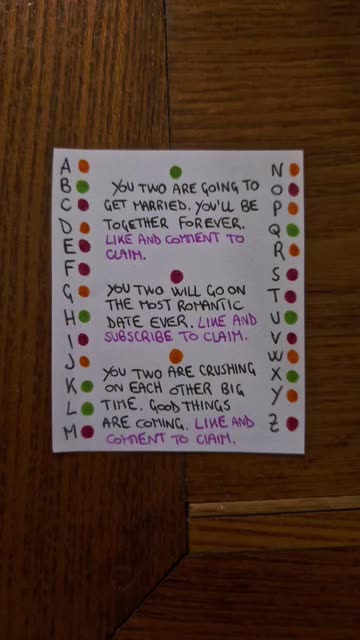 A
B
C
D
E
F
G
H
I
J
K
L
M
YOU TWO ARE GOING TO
GET MARRIED. YOU'LL BE
TOGETHER FOREVER.
LIKE AND COMMENT TO
CLAIM.
YOU TWO WILL GO ON
THE MOST ROMANTIC
DATE EVER. LIKE AND
SUBSCRIBE TO CLAIM.
YOU TWO ARE CRUSHING
ON EACH OTHER BIG
TIME. GOOD THINGS
ARE COMING. LIKE AND
COMMENT TO CLAIM.
N
O
P
Q
R
S
T
U
V
W
X
Y
Z